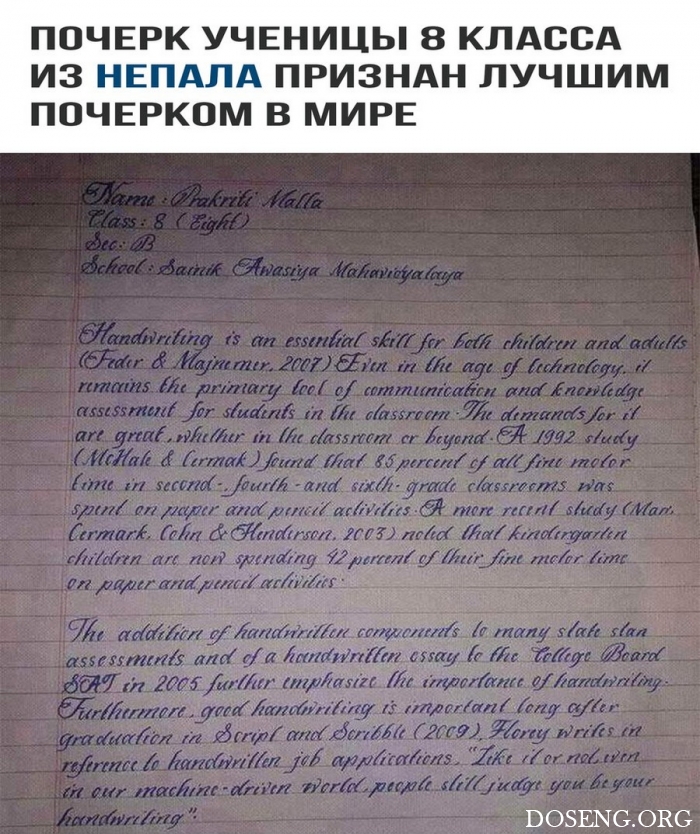 ПОЧЕРК УЧЕНИЦЫ 8 КЛАССА
ИЗ НЕПАЛА ПРИЗНАН ЛУЧШИМ
ПОЧЕРКОМ В МИРЕ
Name : Prakriti Malla
Class : 8 (Eight)
Sec : B
School : Sainik Awasiya Mahavidyalaya
Handwriting is an essential skill for both children and adults
(Feder & Majnemer, 2007) Even in the age of technology, it
remains the primary tool of communication and knowledge
assessment for students in the classroom. The demands for it
are great, whether in the classroom or beyond. A 1992 study
(McHale & Cermak) found that 85 percent of all fine motor
time in second-, fourth-and sixth-grade classrooms was
spent on paper and pencil activities. A more recent study (Marr,
Cermark, Cohn & Henderson, 2003) noted that kindergarten
children are now spending 42 percent of their fine motor time
on paper and pencil activities.
The addition of handwritten components to many state stan
assessments and of a handwritten essay to the College Board
SAT in 2005 further emphasize the importance of handwriting.
Furthermore, good handwriting is important long after
graduation in Script and Scribble (2009), Florey writes in
reference to handwritten job applications, "Like it or not, even
in our machine-driven world, people still judge you be your
handwriting".
DOSENG.ORG